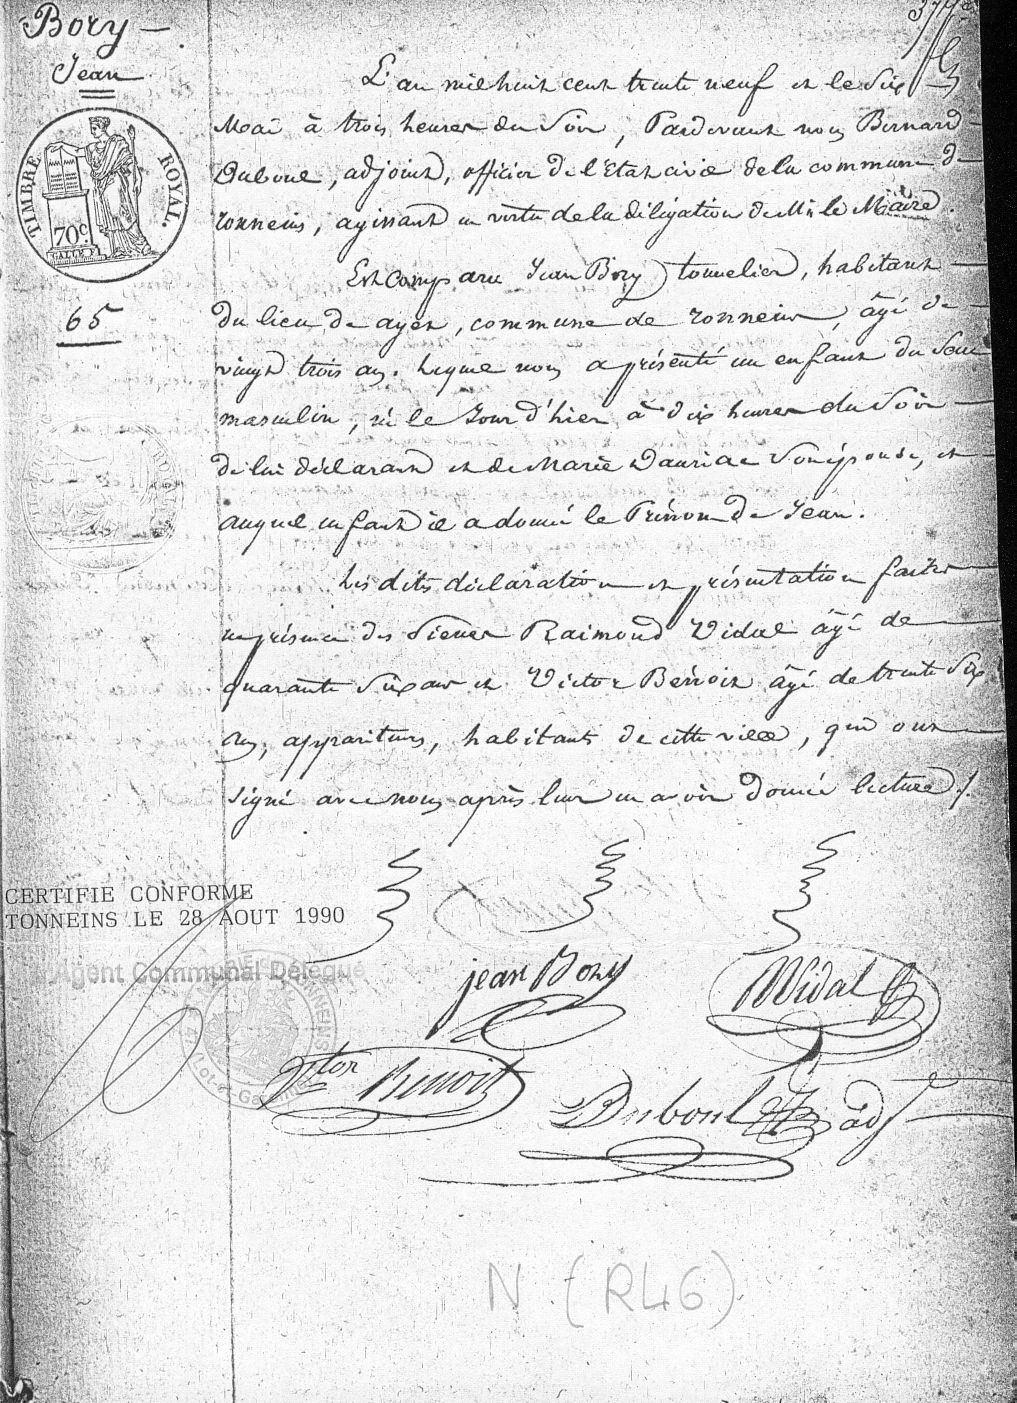 Bory
Jean
L'an mil huit cent trente neuf et le six
Mai à trois heures du soir, Pardevant nous Bernard
Duboul, adjoint, officier de l'Etat civil de la commune de
Tonneins, agissant en vertu de la délégation de Mr le Maire.
TIMBRE ROYAL.
70c.
65
Est Comparu Jean Bory tonnelier, habitant
du lieu de ayet, commune de Tonneins, âgé de
vingt trois ans. Lequel nous a présenté un enfant du sexe
masculin, né le jour d'hier à dix heures du soir
de lui déclarant et de Marie Dauriac son épouse, et
auquel enfant il a donné le Prénom de Jean.
Les dits déclaration et présentation faites
en présence des sieurs Raimond Vidal âgé de
quarante six ans et Victor Benoit âgé de trente six
ans, appariteurs, habitants de cette ville, qui ont
signé avec nous après leur en avoir donné lecture /.
CERTIFIE CONFORME
TONNEINS LE 28 AOUT 1990
Agent Communal Délégué
jean Bory
RVidal
Vtor Benoit
Duboul adj
N (R46)